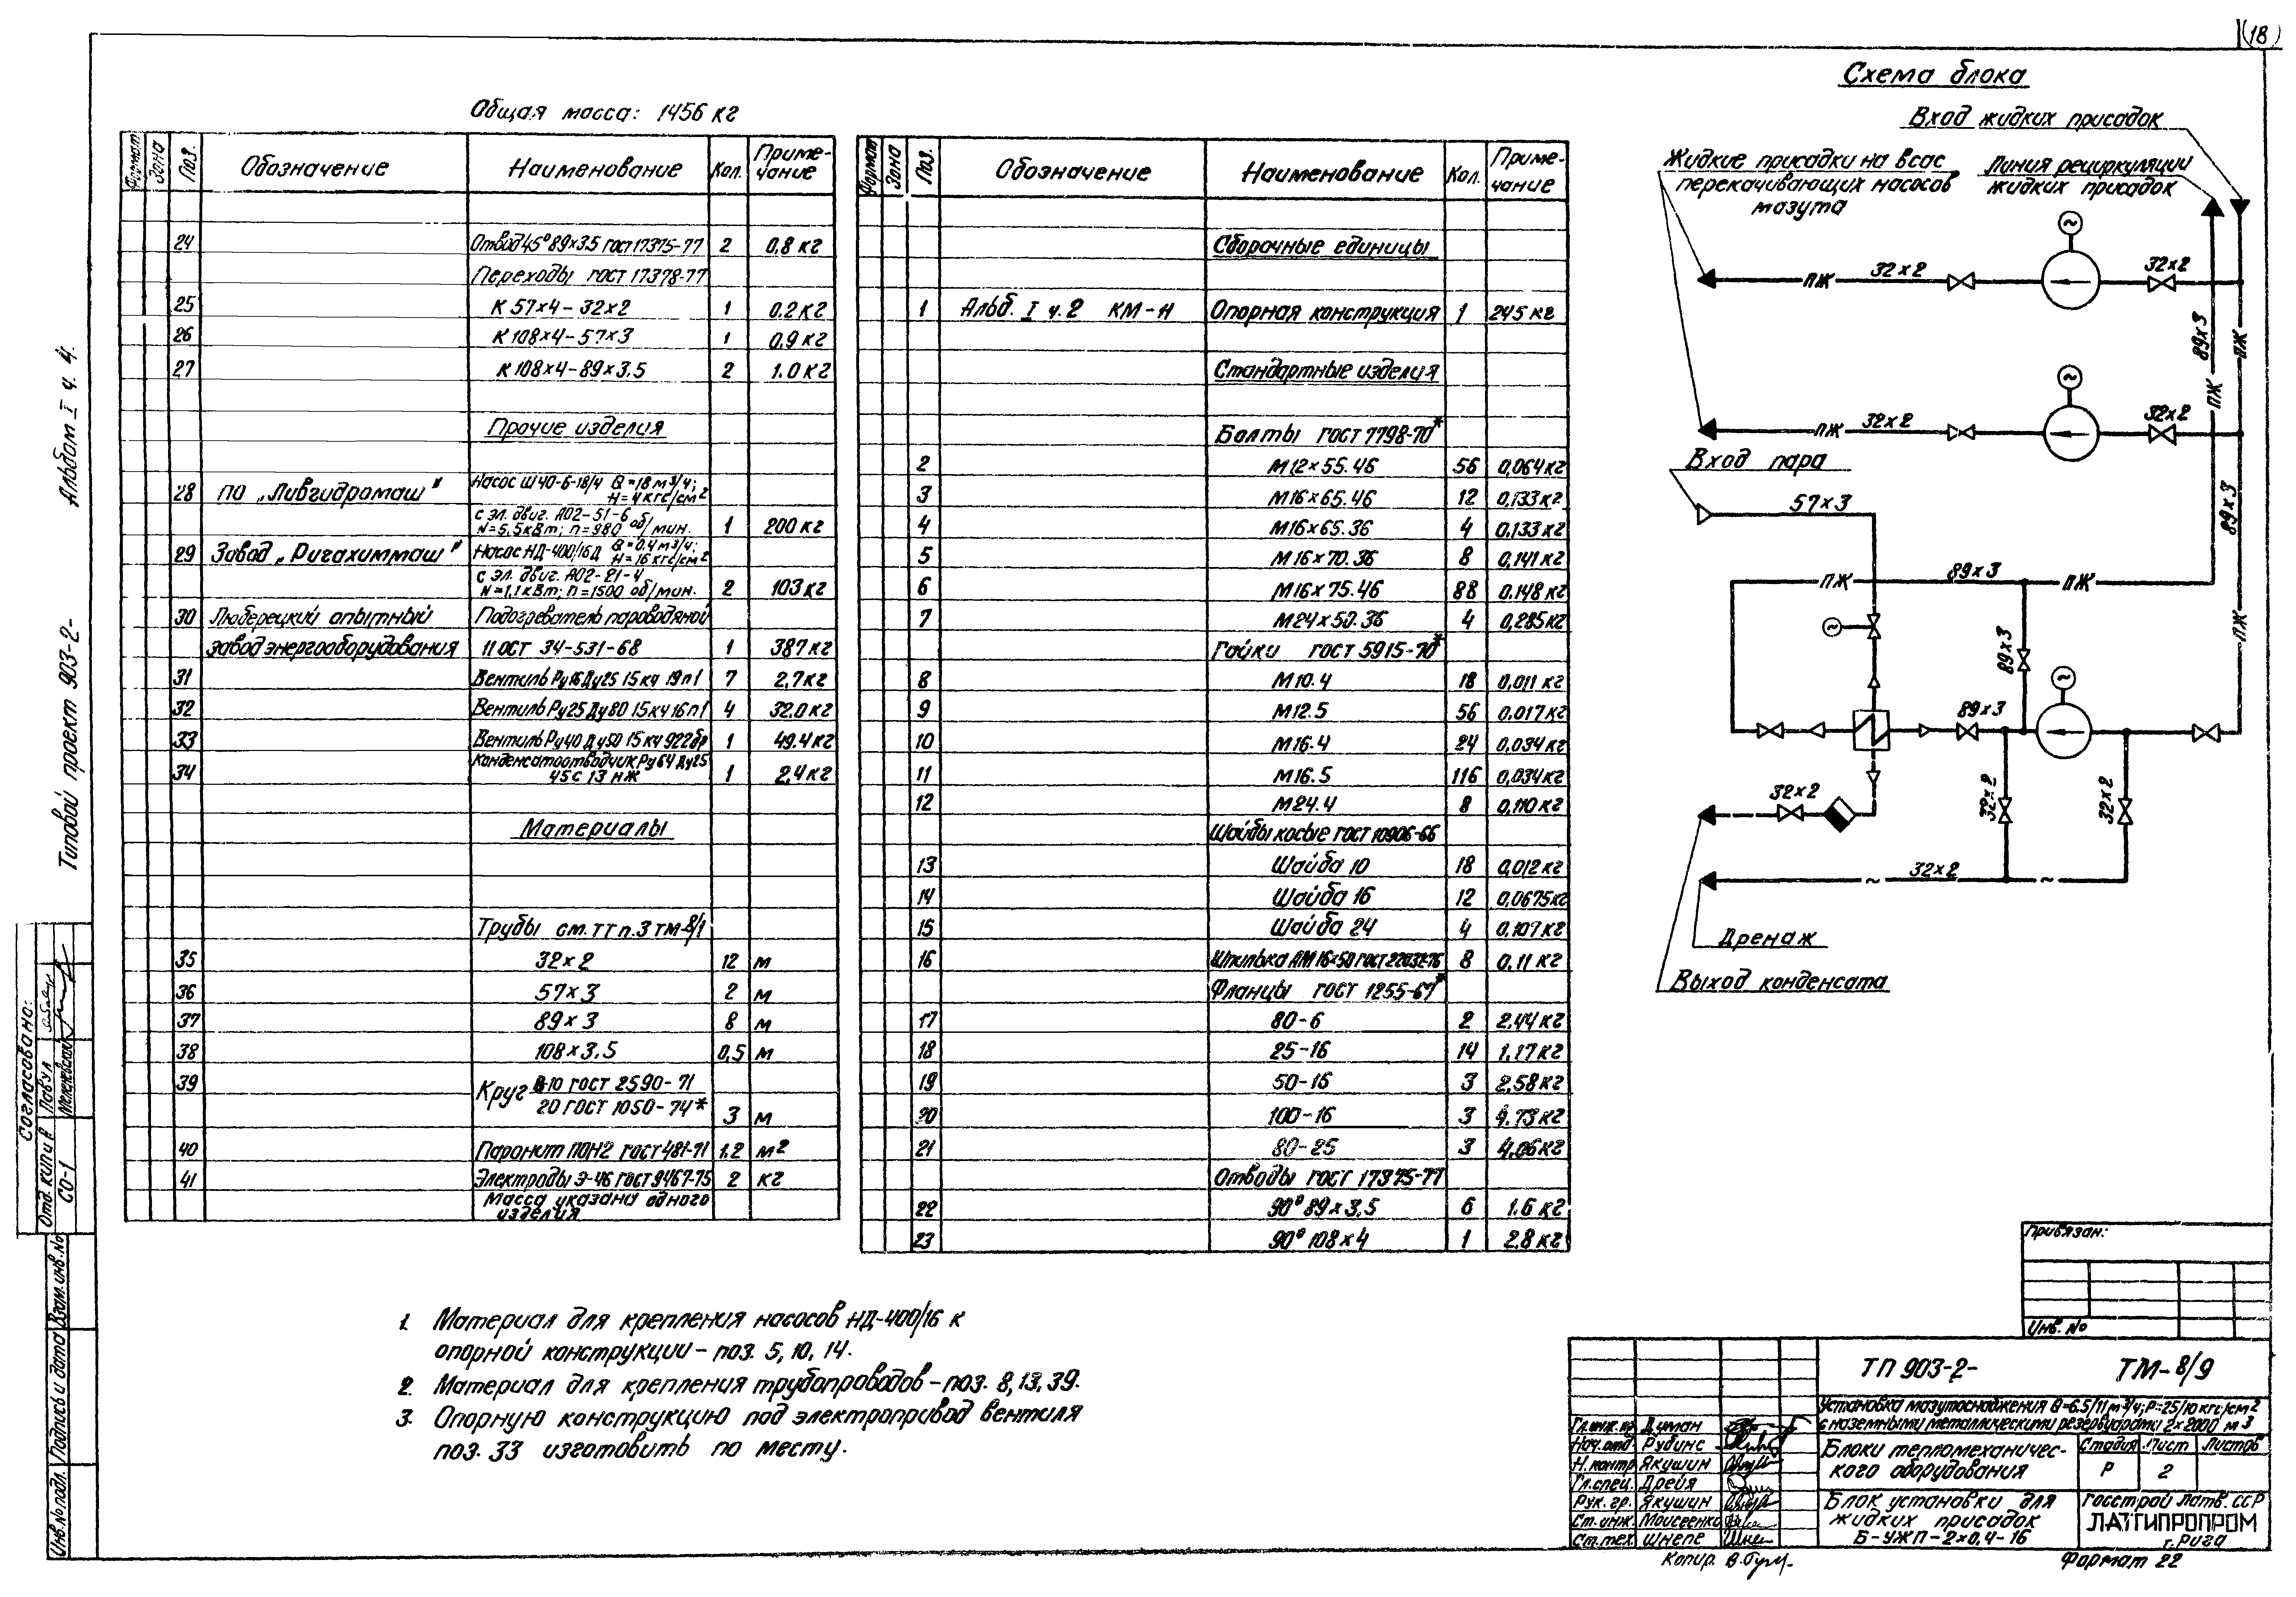 18
Схема блока
Общая масса: 1456 кг
Формат Зона Поз. Обозначение Наименование Кол. Приме-чание
24 Отвод 45° 89×3.5 ГОСТ 17375-77 2 0.8 кг
Переходы ГОСТ 17378-77
25 К 57×4-32×2 1 0.2 кг
26 К 108×4-57×3 1 0.9 кг
27 К 108×4-89×3.5 2 1.0 кг
Прочие изделия
28 ПО „Ливгидромаш" Насос Ш40-6-18/4 Q=18 м³/ч;
H=4 кгс/см²
с эл. двиг. АО2-51-6
N=5,5 кВт; n=980 об/мин. 1 200 кг
29 Завод „Ригахиммаш" Насос НД-400/16Д Q=0.4 м³/ч;
H=16 кгс/см²
с эл. двиг. АО2-21-4
N=1,1 кВт; n=1500 об/мин. 2 103 кг
30 Люберецкий опытный Подогреватель пароводяной
завод энергооборудования 11 ОСТ 34-531-68 1 387 кг
31 Вентиль Ру16 Ду25 15кч 19п1 7 2,7 кг
32 Вентиль Ру25 Ду80 15кч 16п1 4 32.0 кг
33 Вентиль Ру40 Ду50 15кч 922бр 1 49.4 кг
34 Конденсатоотводчик Ру64 Ду25
45с 13 нж 1 2,4 кг
Материалы
Трубы см. ТТ п.3 ТМ-8/1
35 32×2 12 м
36 57×3 2 м
37 89×3 8 м
38 108×3,5 0,5 м
39 Круг В-10 ГОСТ 2590-71
20 ГОСТ 1050-74* 3 м
40 Паронит ПОН2 ГОСТ 481-71 1.2 м²
41 Электроды Э-46 ГОСТ 9467-75 2 кг
Масса указана одного
изделия
Формат Зона Поз. Обозначение Наименование Кол. Приме-чание
Сборочные единицы
1 Альб. I ч.2 КМ-Н Опорная конструкция 1 245 кг
Стандартные изделия
Болты ГОСТ 7798-70*
2 М12×55.46 56 0,064 кг
3 М16×65.46 12 0,133 кг
4 М16×65.36 4 0,133 кг
5 М16×70.36 8 0,141 кг
6 М16×75.46 88 0.148 кг
7 М24×50.36 4 0,285 кг
Гайки ГОСТ 5915-70*
8 М10.4 18 0,011 кг
9 М12.5 56 0.017 кг
10 М16.4 24 0,034 кг
11 М16.5 116 0,034 кг
12 М24.4 8 0,110 кг
Шайбы косые ГОСТ 10906-66
13 Шайба 10 18 0,012 кг
14 Шайба 16 12 0,0675 кг
15 Шайба 24 4 0.107 кг
16 Шпилька АМ 16×50 ГОСТ 22032-76 8 0.11 кг
Фланцы ГОСТ 1255-67*
17 80-6 2 2.44 кг
18 25-16 14 1.17 кг
19 50-16 3 2.58 кг
20 100-16 3 4.73 кг
21 80-25 3 4,06 кг
Отводы ГОСТ 17375-77
22 90° 89×3,5 6 1.6 кг
23 90° 108×4 1 2.8 кг
Вход жидких присадок
Жидкие присадки на всас
перекачивающих насосов
мазута
Линия рециркуляции
жидких присадок
ПЖ 32×2 32×2
89×3 ПЖ
ПЖ 32×2 32×2
ПЖ
Вход пара
57×3
89×3
ПЖ 89×3 ПЖ
ПЖ
89×3
89×3
32×2
32×2 32×2
~ 32×2 ~
Дренаж
Выход конденсата
1. Материал для крепления насосов НД-400/16 к
опорной конструкции - поз. 5, 10, 14.
2. Материал для крепления трубопроводов - поз. 8, 13, 39.
3. Опорную конструкцию под электропривод вентиля
поз. 33 изготовить по месту.
Альбом I ч. 4.
Типовой проект 903-2-
Согласовано:
Отд. КИП и В Павул
СО-1
Инв.№ подл. Подпись и дата Взам.инв.№
Привязан:
Инв. №
ТП 903-2- ТМ-8/9
Установка мазутоснабжения Q=6.5/11 м³/ч; P=25/10 кгс/см²
с наземными металлическими резервуарами 2×2000 м³
Гл.инж.пр. Думан
Нач.отд. Рубинс
Н.контр Якушин
Гл.спец. Дрейя
Рук.гр. Якушин
Ст.инж. Моисеенко
Ст.тех. Шнепе
Блоки тепломеханичес-
кого оборудования
Стадия Лист Листов
Р 2
Блок установки для
жидких присадок
Б-УЖП-2×0,4-16
Госстрой Латв.ССР
ЛАТГИПРОПРОМ
г.Рига
Копир. Формат 22